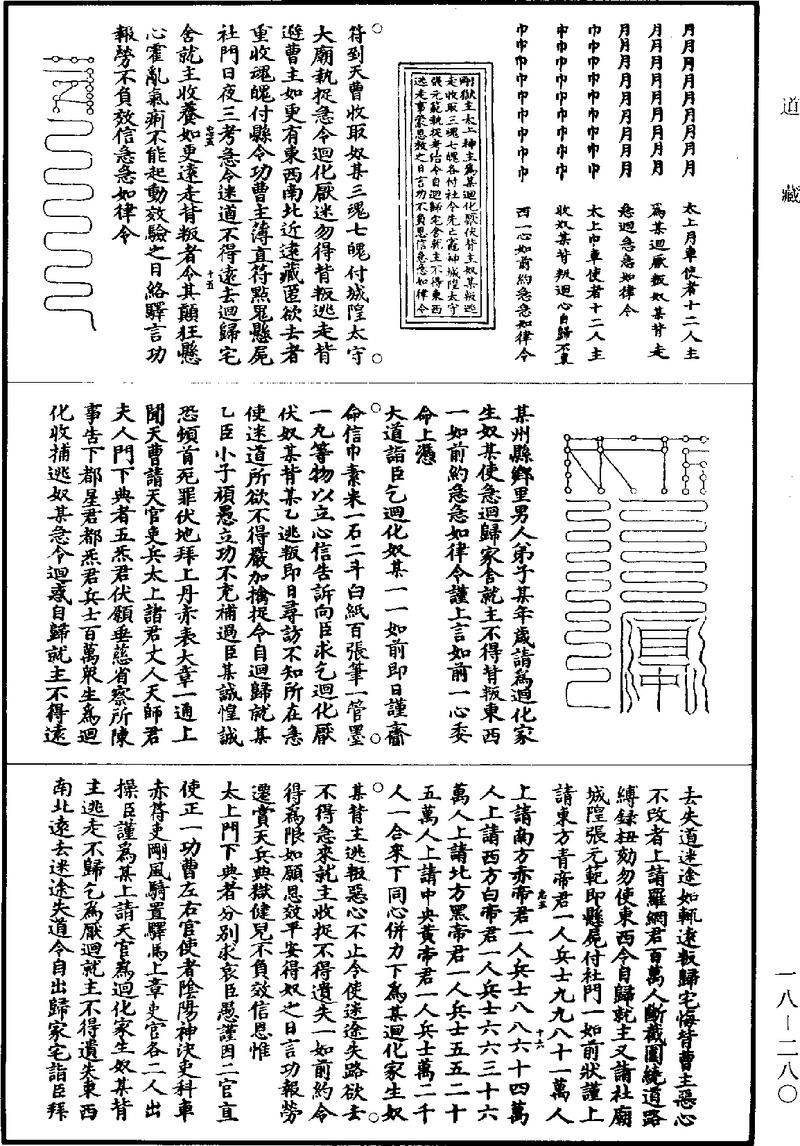 道藏
一八—二八〇
月月月月月月月月月 太上月車使者十二人主
月月月月月月月月月 為某迴厭叛奴某背走
月月月月月月月月月 急迴急急如律令
巾巾巾巾巾巾巾巾巾 太上巾車使者十二人主
巾巾巾巾巾巾巾巾巾 收奴某背叛迴心自歸不東
巾巾巾巾巾巾巾巾巾 西一心如前約急急如律令
獄主太上神主為某迴化厭伏背主奴某叛逃
走收取三魂七魄各付社令先亡竈神城隍太守
張元範執捉考治令自迴歸宅舍就主不得東西
逃走事蒙恩效之日言功不負恩信急急如律令
符到天曹收取奴某三魂七魄付城隍太守
大廟執捉急令迴化厭迷勿得背叛逃走背
避曹主如更有東西南北近遠藏匿欲去者
重收魂魄付縣令功曹主簿直符黙鬼懸屍
社門日夜三考急令迷道不得遠去迴歸宅
舍就主收養如更遠走背叛者令其顛狂懸
心霍亂氣痢不能起動效驗之日絡驛言功
報勞不負效信急急如律令
某州縣鄉里男人弟子某年歲請為迴化家
生奴某使急迴歸家舍就主不得背叛東西
一如前約急急如律令謹上言如前一心委
命上憑
大道詣臣乞迴化奴某一一如前即日謹齎
命信巾素米一石二斗白紙百張筆一管墨
一丸等物以立心信告訴向臣求乞迴化厭
伏奴某背某乙逃叛即日尋訪不知所在急
使迷道所欲不得嚴加擒捉令自迴歸就某
乙臣小子頑愚立功不充補過臣某誠惶誠
恐頓首死罪伏地拜上丹赤表大章一通上
聞天曹請天官吏兵太上諸君丈人天師君
夫人門下典者五炁君伏願垂慈省察所陳
事告下都星君都炁君兵士百萬衆生為迴
化收捕逃奴某急令迴惑自歸就主不得遠
去失道迷途如輒遠叛歸宅悔背曹主惡心
不改者上請羅網君百萬人斷截圍繞道路
縛録杻効勿使東西令自歸就主又請社廟
城隍張元範即懸屍付社門一如前狀謹上
請東方青帝君一人兵士九九八十一萬人
上請南方赤帝君一人兵士八八六十四萬
人上請西方白帝君一人兵士六六三十六
萬人上請北方黑帝君一人兵士五五二十
五萬人上請中央黃帝君一人兵士萬二千
人一合來下同心併力下為某迴化家生奴
某背主逃叛惡心不止令使迷途失路欲去
不得急來就主收捉不得遺失一如前約令
得為限如願恩效平安得奴之日言功報勞
還賞天兵典獄健兒不負效信恩惟
太上門下典者分別求哀臣愚謹因二官直
使正一功曹左右官使者陰陽神決吏科車
赤符吏剛風騎置驛馬上章吏官各二人出
操臣謹為某上請天官為迴化家生奴某背
主逃走不歸乞為厭迴就主不得遺失東西
南北遠去迷途失道令自出歸家宅詣臣拜